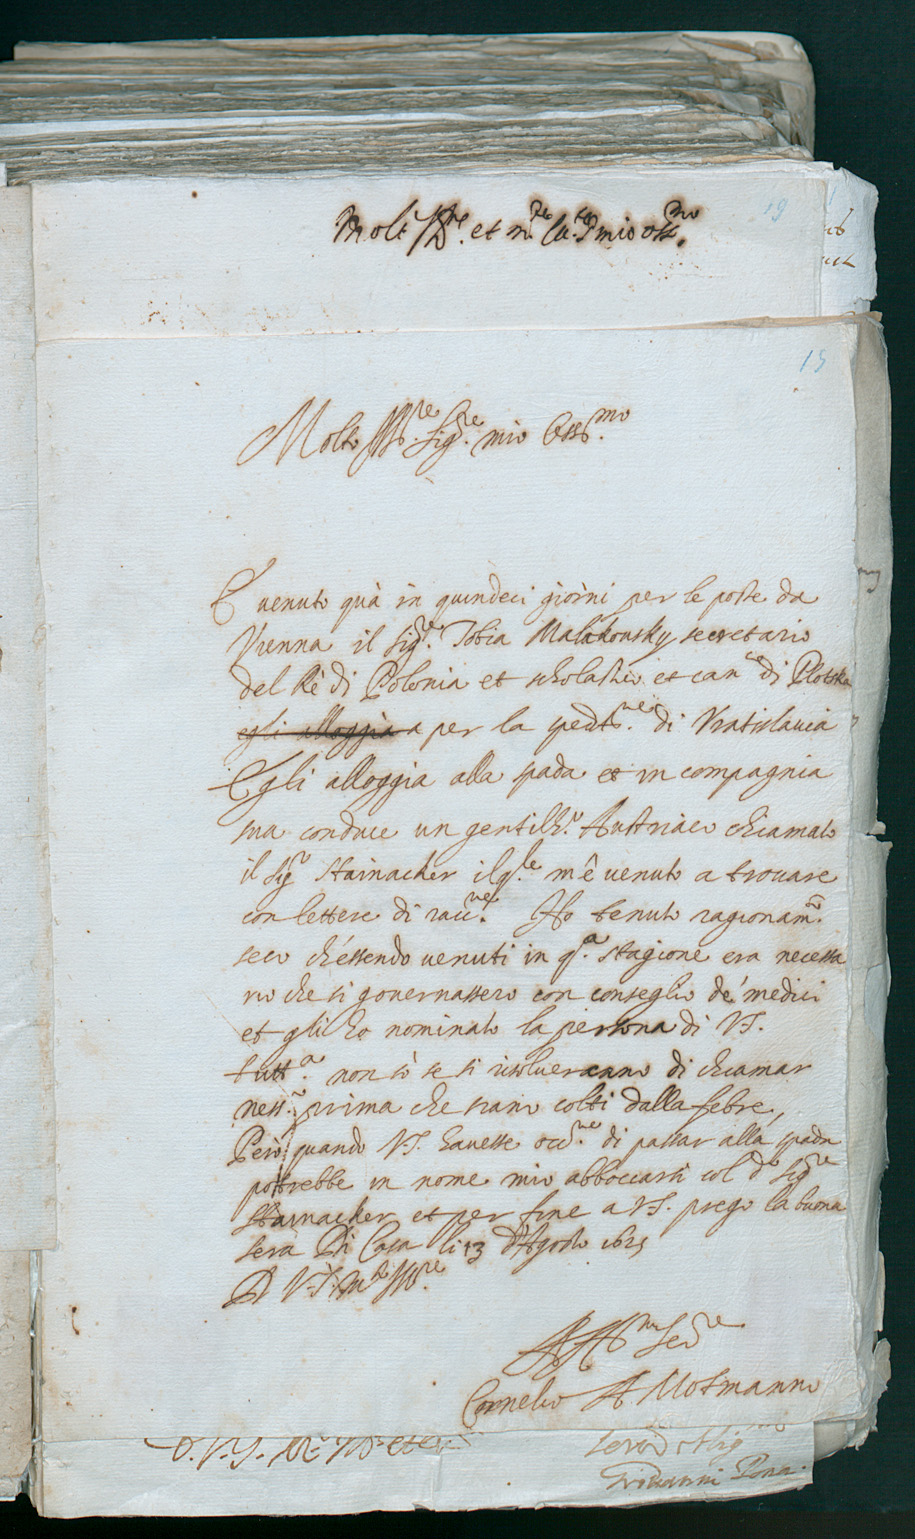 Molt Ill.re et m.to
mio oss.mo
19
15
Molto Ill.re Sig.re mio Oss.mo
E' uenuto quà in quindeci giorni per le poste da
Vienna il Sig.re Tobia Malakousky secretario
del Rè di Polonia et scholastico et can.co di Plotska
egli alloggia a per la spedit.ne di Vratislauia
Egli alloggia alla spada et in compagnia
sua conduce un gentilh.o Austriaco chiamato
il Sig.r Stainacher il q.le m'è uenuto a trouare
con lettere di racc.ne Ho tenuto ragionam.to
seco ch'essendo uenuti in q.a stagione era necessa
rio che si gouernassero con conseglio de' medici
et gli ho nominato la persona di V.S.
tutt.a non sò se si risolueranno di chiamar
ness.o prima che siano colti dalla febre,
Però quando V.S. hauesse occ.ne di passar alla spada
potrebbe in nome mio abboccarsi col d.o Sig.re
Stainacher et per fine a V.S. prego la buona
sera Di Casa li 13 d'Agosto 1625
D V.S. M.to Ill.re
Aff.mo Ser.re
Cornelio A Motmanno
D. V. S. M.to Ill.re et
Giouanni Pona.